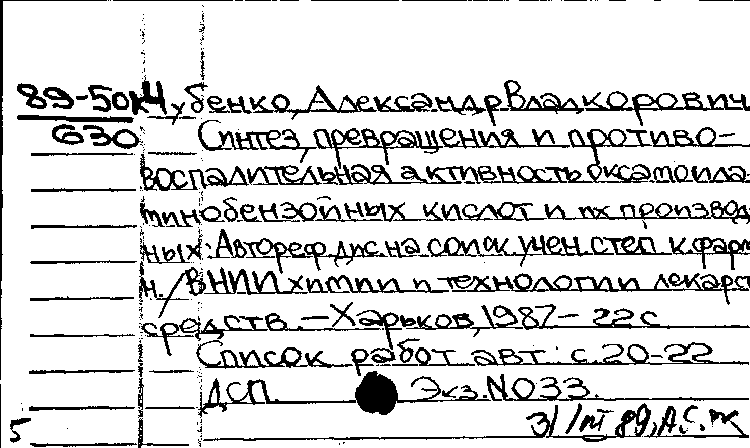 89-50к Чубенко, Александр Владкорович
630 Синтез, превращения и противо-
воспалительная активность оксамоила-
минобензойных кислот и их производ
ных: Автореф. дис. на соиск. учен. степ. к. фарм
н. / ВНИИ химии и технологии лекарст
средств. - Харьков, 1987. - 22 с.
Список работ авт.: с. 20-22
ДСП Экз. N033.
5